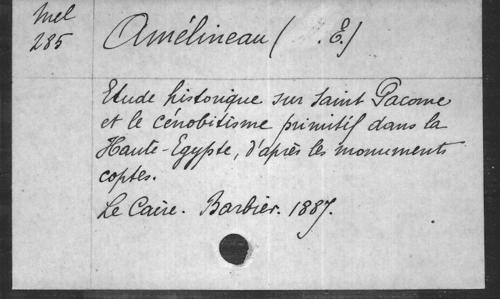 Mel
285
Amélineau ( . E.)
Etude historique sur Saint Pacome
et le cénobitisme primitif dans la
Haute-Egypte, d'après les monuments
coptes.
Le Caire. Barbier. 1887.